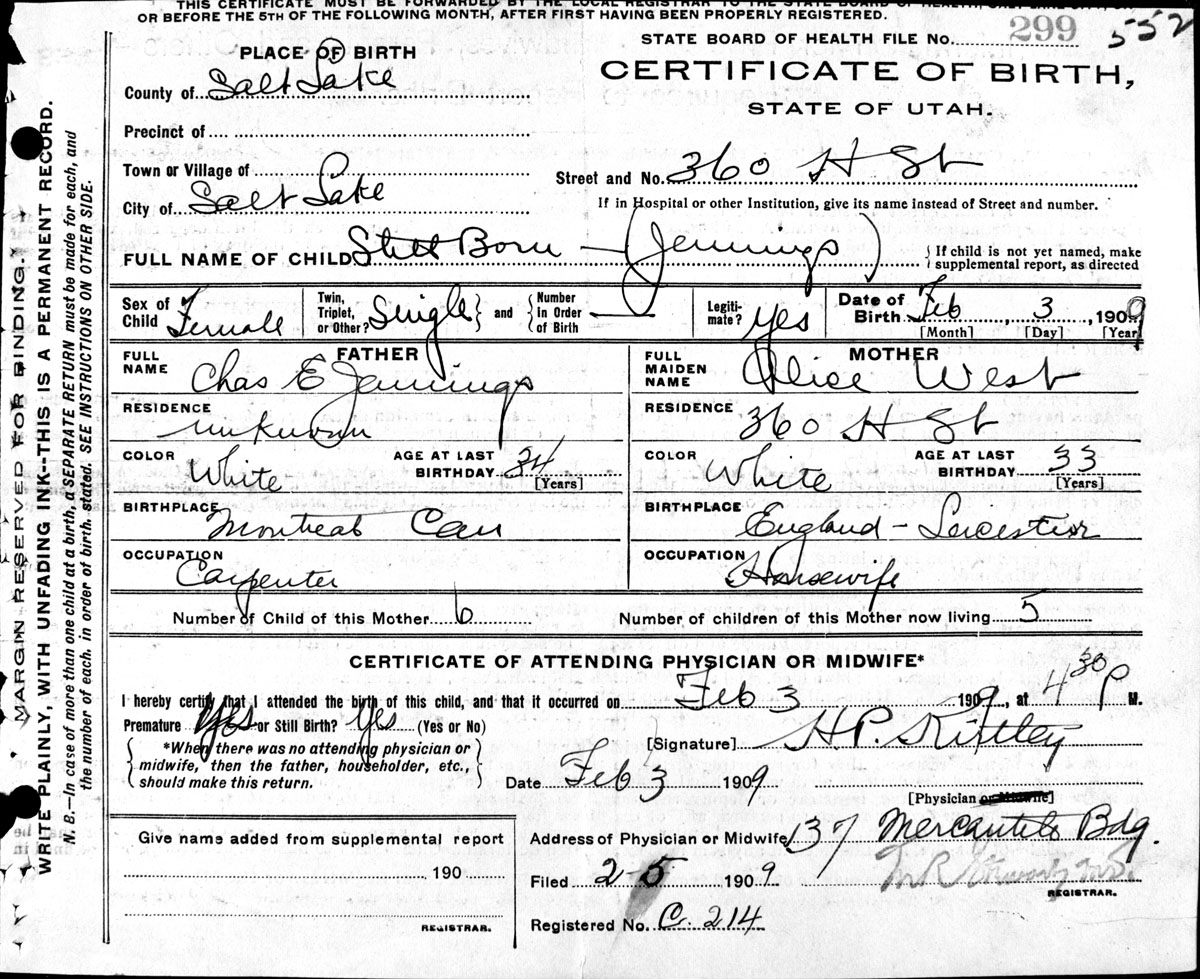 THIS CERTIFICATE MUST BE FORWARDED BY THE LOCAL REGISTRAR TO THE STATE BOARD OF HEALTH,
OR BEFORE THE 5TH OF THE FOLLOWING MONTH, AFTER FIRST HAVING BEEN PROPERLY REGISTERED.
STATE BOARD OF HEALTH FILE No. 299 552
PLACE OF BIRTH
CERTIFICATE OF BIRTH,
County of Salt Lake
STATE OF UTAH.
Precinct of
Town or Village of
Street and No. 360 H St
City of Salt Lake
If in Hospital or other Institution, give its name instead of Street and number.
FULL NAME OF CHILD Still Born - (Jennings) {If child is not yet named, make supplemental report, as directed
Sex of Child Female Twin, Triplet, or Other? Single } and { Number In Order of Birth — Legitimate? yes Date of Birth Feb 3, 1909
[Month] [Day] [Year]
FATHER MOTHER
FULL NAME Chas E Jennings FULL MAIDEN NAME Alice West
RESIDENCE unknown RESIDENCE 360 H St
COLOR White AGE AT LAST BIRTHDAY 34 [Years] COLOR White AGE AT LAST BIRTHDAY 33 [Years]
BIRTHPLACE Montreal Can BIRTHPLACE England - Leicester
OCCUPATION Carpenter OCCUPATION Housewife
Number of Child of this Mother 6 Number of children of this Mother now living 5
CERTIFICATE OF ATTENDING PHYSICIAN OR MIDWIFE*
I hereby certify that I attended the birth of this child, and that it occurred on Feb 3 1909, at 4 30 P M.
Premature Yes or Still Birth? Yes (Yes or No)
*When there was no attending physician or midwife, then the father, householder, etc., should make this return.
[Signature] H P. Kirtley
Date Feb 3 1909
[Physician or Midwife]
Give name added from supplemental report
190
REGISTRAR.
Address of Physician or Midwife 137 Mercantile Bdg.
Filed 2-5 1909
REGISTRAR.
Registered No. C. 214
MARGIN RESERVED FOR BINDING.
WRITE PLAINLY, WITH UNFADING INK--THIS IS A PERMANENT RECORD.
N. B.—In case of more than one child at a birth, a SEPARATE RETURN must be made for each, and
the number of each, in order of birth, stated. SEE INSTRUCTIONS ON OTHER SIDE.